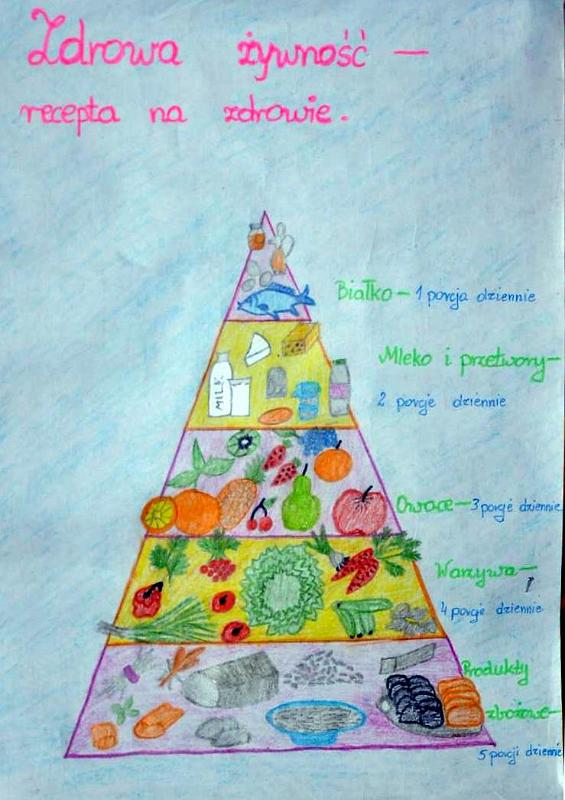 Zdrowa żywność –
recepta na zdrowie.
Białko – 1 porcja dziennie
Mleko i przetwory –
2 porcje dziennie
MILK
Owoce – 3 porcje dziennie
Warzywa –
4 porcje dziennie
Produkty
zbożowe –
5 porcji dziennie